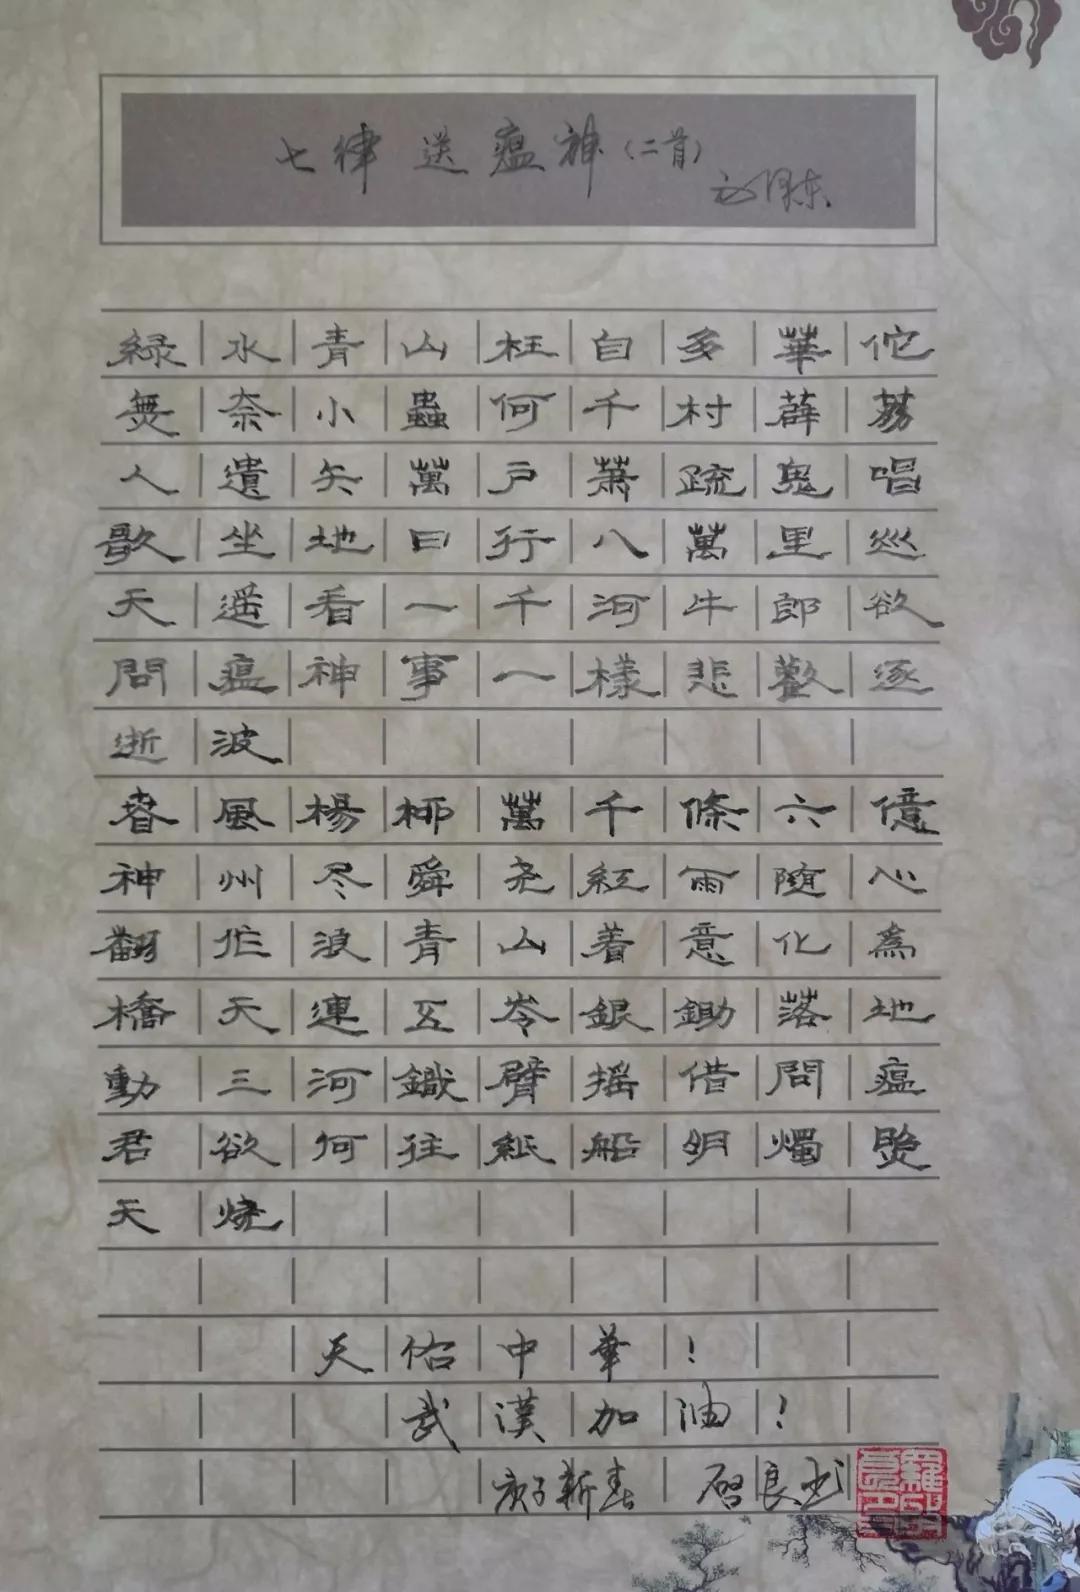 七律 送瘟神(二首)
毛泽东
緑水青山枉自多華佗
無奈小蟲何千村薜荔
人遺矢萬户蕭疏鬼唱
歌坐地日行八萬里巡
天遥看一千河牛郎欲
問瘟神事一樣悲歡逐
逝波
春風楊柳萬千條六億
神州尽舜尧紅雨随心
翻作浪青山着意化為
橋天連五岺銀鋤落地
動三河鐵臂摇借問瘟
君欲何往紙船明燭照
天烧
天佑中華!
武漢加油!
庚子新春 啓良书